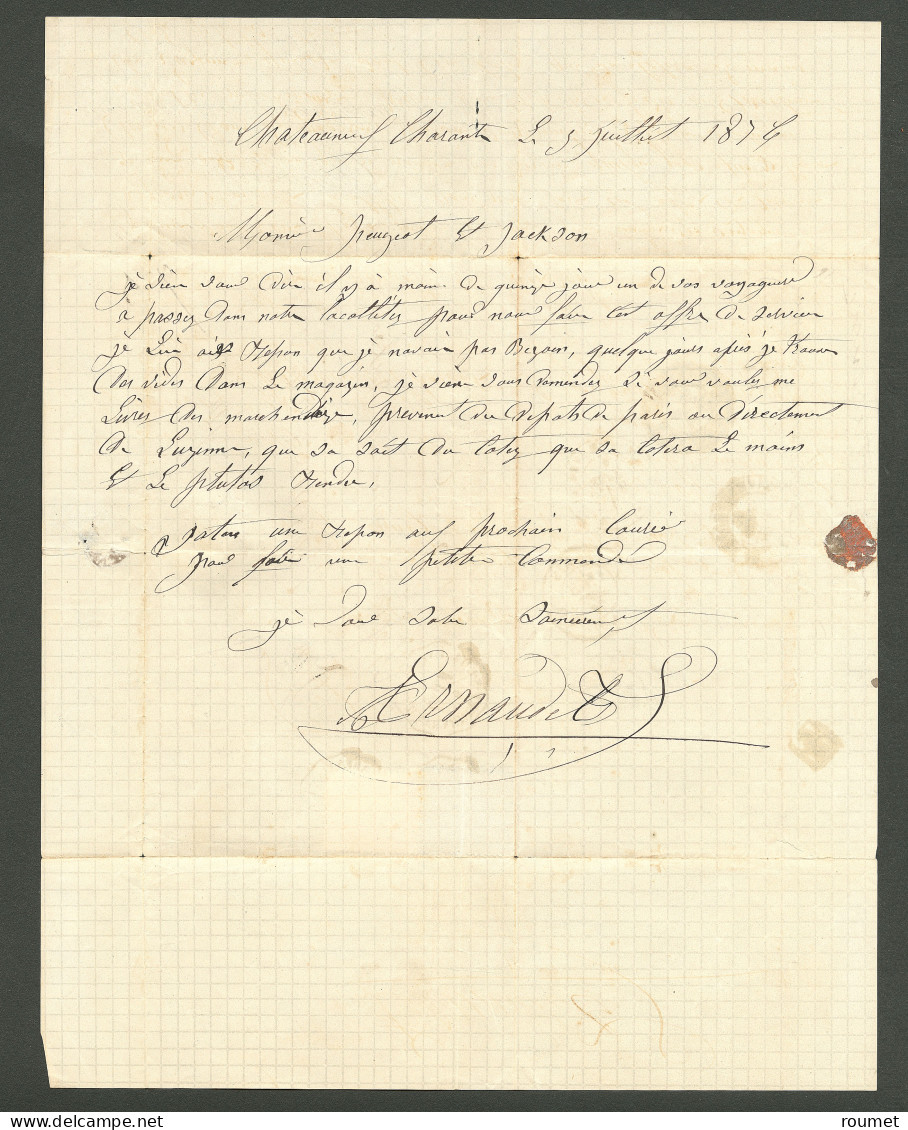 Chateauneuf Charante Le 5 Juillet 1876
Monsier Peugeot Et Jackson
je vien vous dire il y à moin de quinze jour un de vos voyageurs
a passez dans notre locallitez pour nous faire cest offre de service
je Lui ais Repon que je navais pas Besoin, quelque jours après je trouve
des vides dans Le magazin, je viens vous demendez Si vous voulez me
Livres des marchendize, provenent du depots de paris ou Directement
de Luzinne, que sa soit du cotez que sa cotera Le moins
Et Le plutôs Rendu,
Jatens une Repon aus prochain Courié
pour faire une petite Commende
je vous salu
AErnaudet
roumet